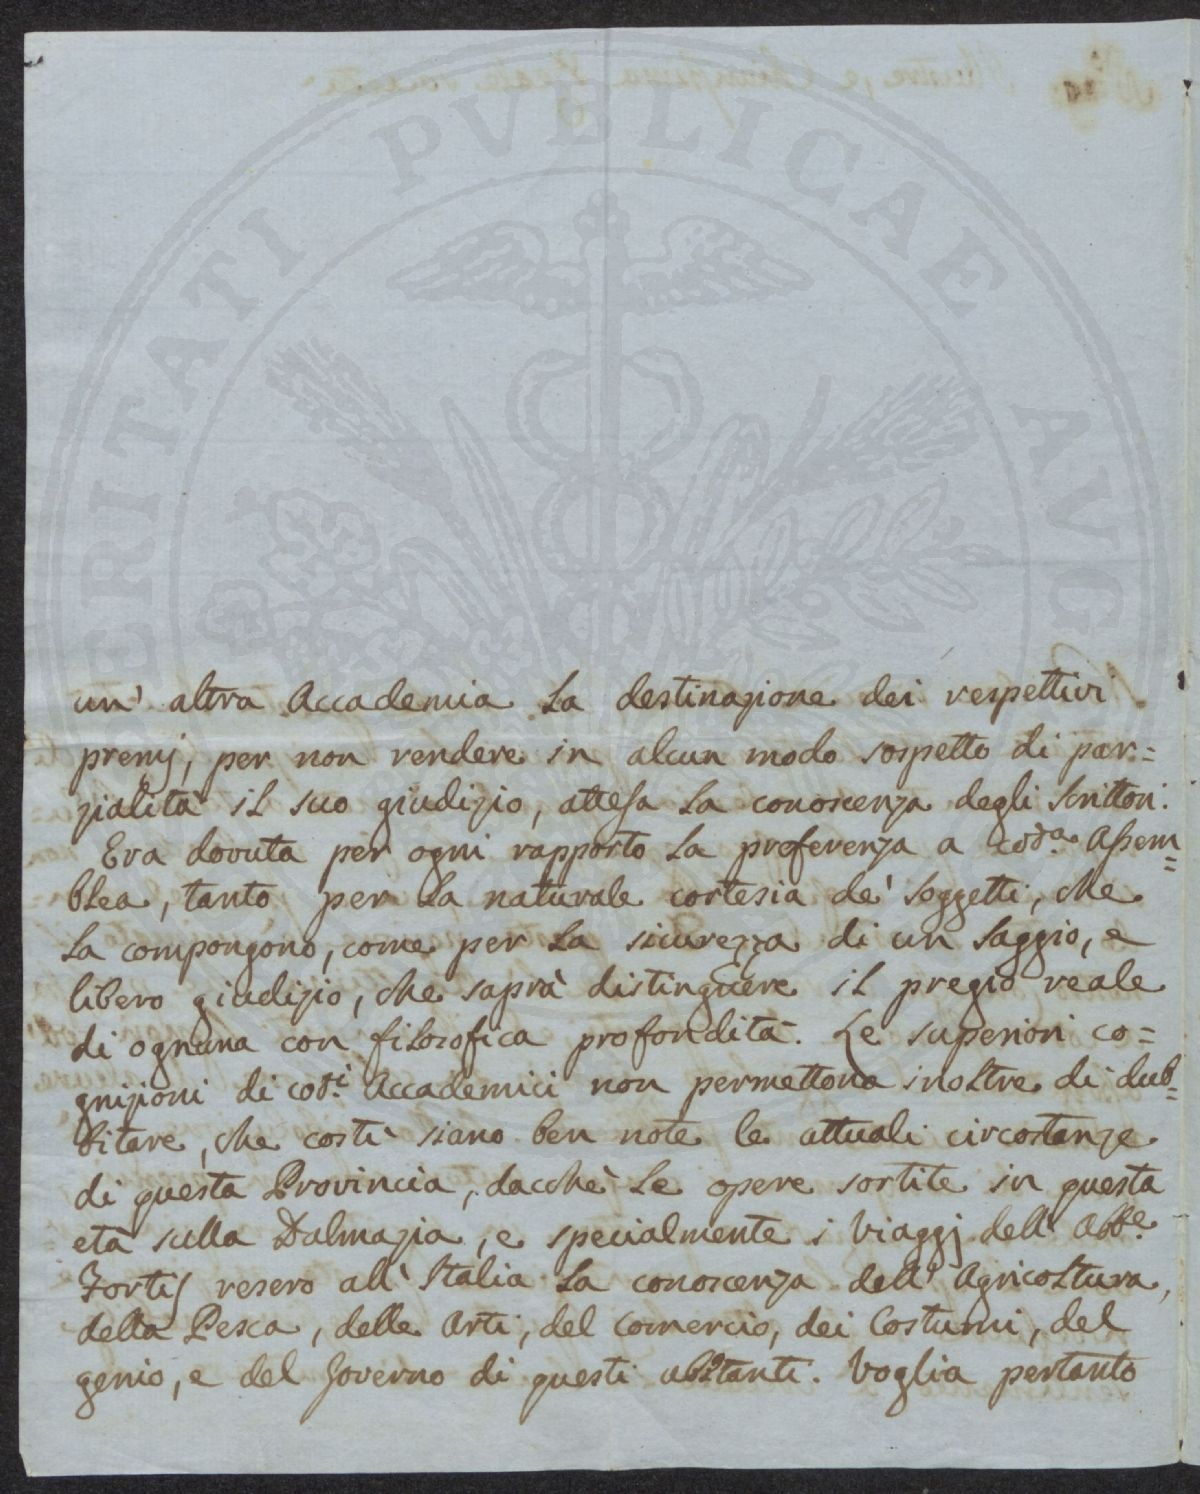 PERITATI PVBLICAE AVG
un' altra Accademia la destinazione dei respettivi
premj, per non rendere in alcun modo sospetto di par=
zialità il suo giudizio, attesa la conoscenza degli scrittori.
Era dovuta per ogni rapporto la preferenza a cod.a Assem=
blea, tanto per la naturale cortesia de' soggetti, che
la compongono, come per la sicurezza di un saggio, e
libero giudizio, che saprà distinguere il pregio reale
di ognuna con filosofica profondità. Le superiori co=
gnizioni di cod.i Accademici non permettono inoltre di dub=
bitare, che costì siano ben note le attuali circostanze
di questa Provincia, dacchè le opere sortite in questa
età sulla Dalmazia, e specialmente i Viaggj dell' Abb.e
Fortis resero all' Italia la conoscenza dell' Agricoltura,
della Pesca, delle Arti, del Comercio, dei Costumi, del
genio, e del Governo di questi abitanti. Voglia pertanto